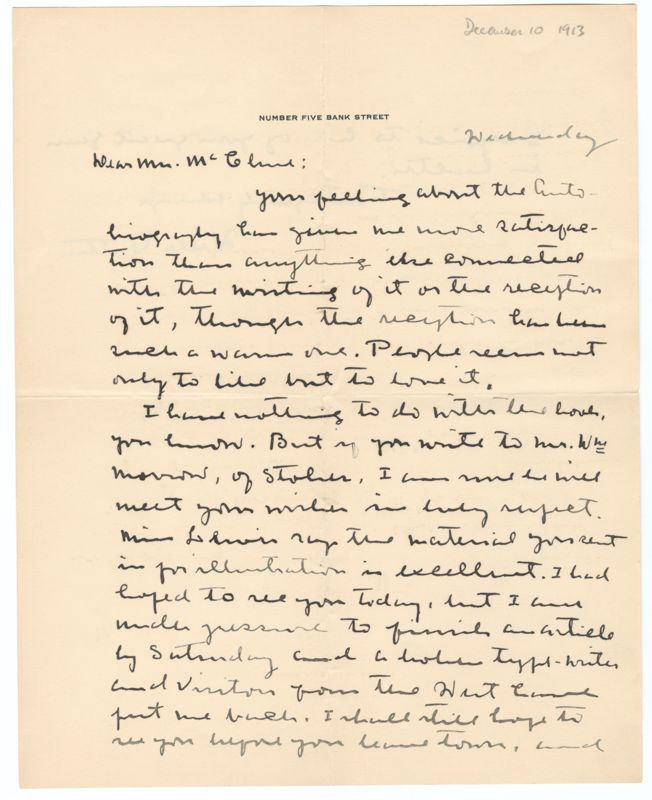 December 10 1913
NUMBER FIVE BANK STREET
Wednesday
Dear Mr. McClure:
Your feeling about the Auto-
biography has given me more satisfac-
tion than anything else connected
with the writing of it or the reception
of it, though the reception has been
such a warm one. People seem not
only to like but to love it.
I have nothing to do with the book,
you know. But if you write to Mr. Wm
Morrow, of Stokes, I am sure he will
meet your wishes in every respect.
Miss Lewis says the material you sent
in for illustration is excellent. I had
hoped to see you today, but I am
under pressure to finish an article
by Saturday and a broken type-writer
and visitors from the West have
put me back. I shall still hope to
see you before you leave town, and